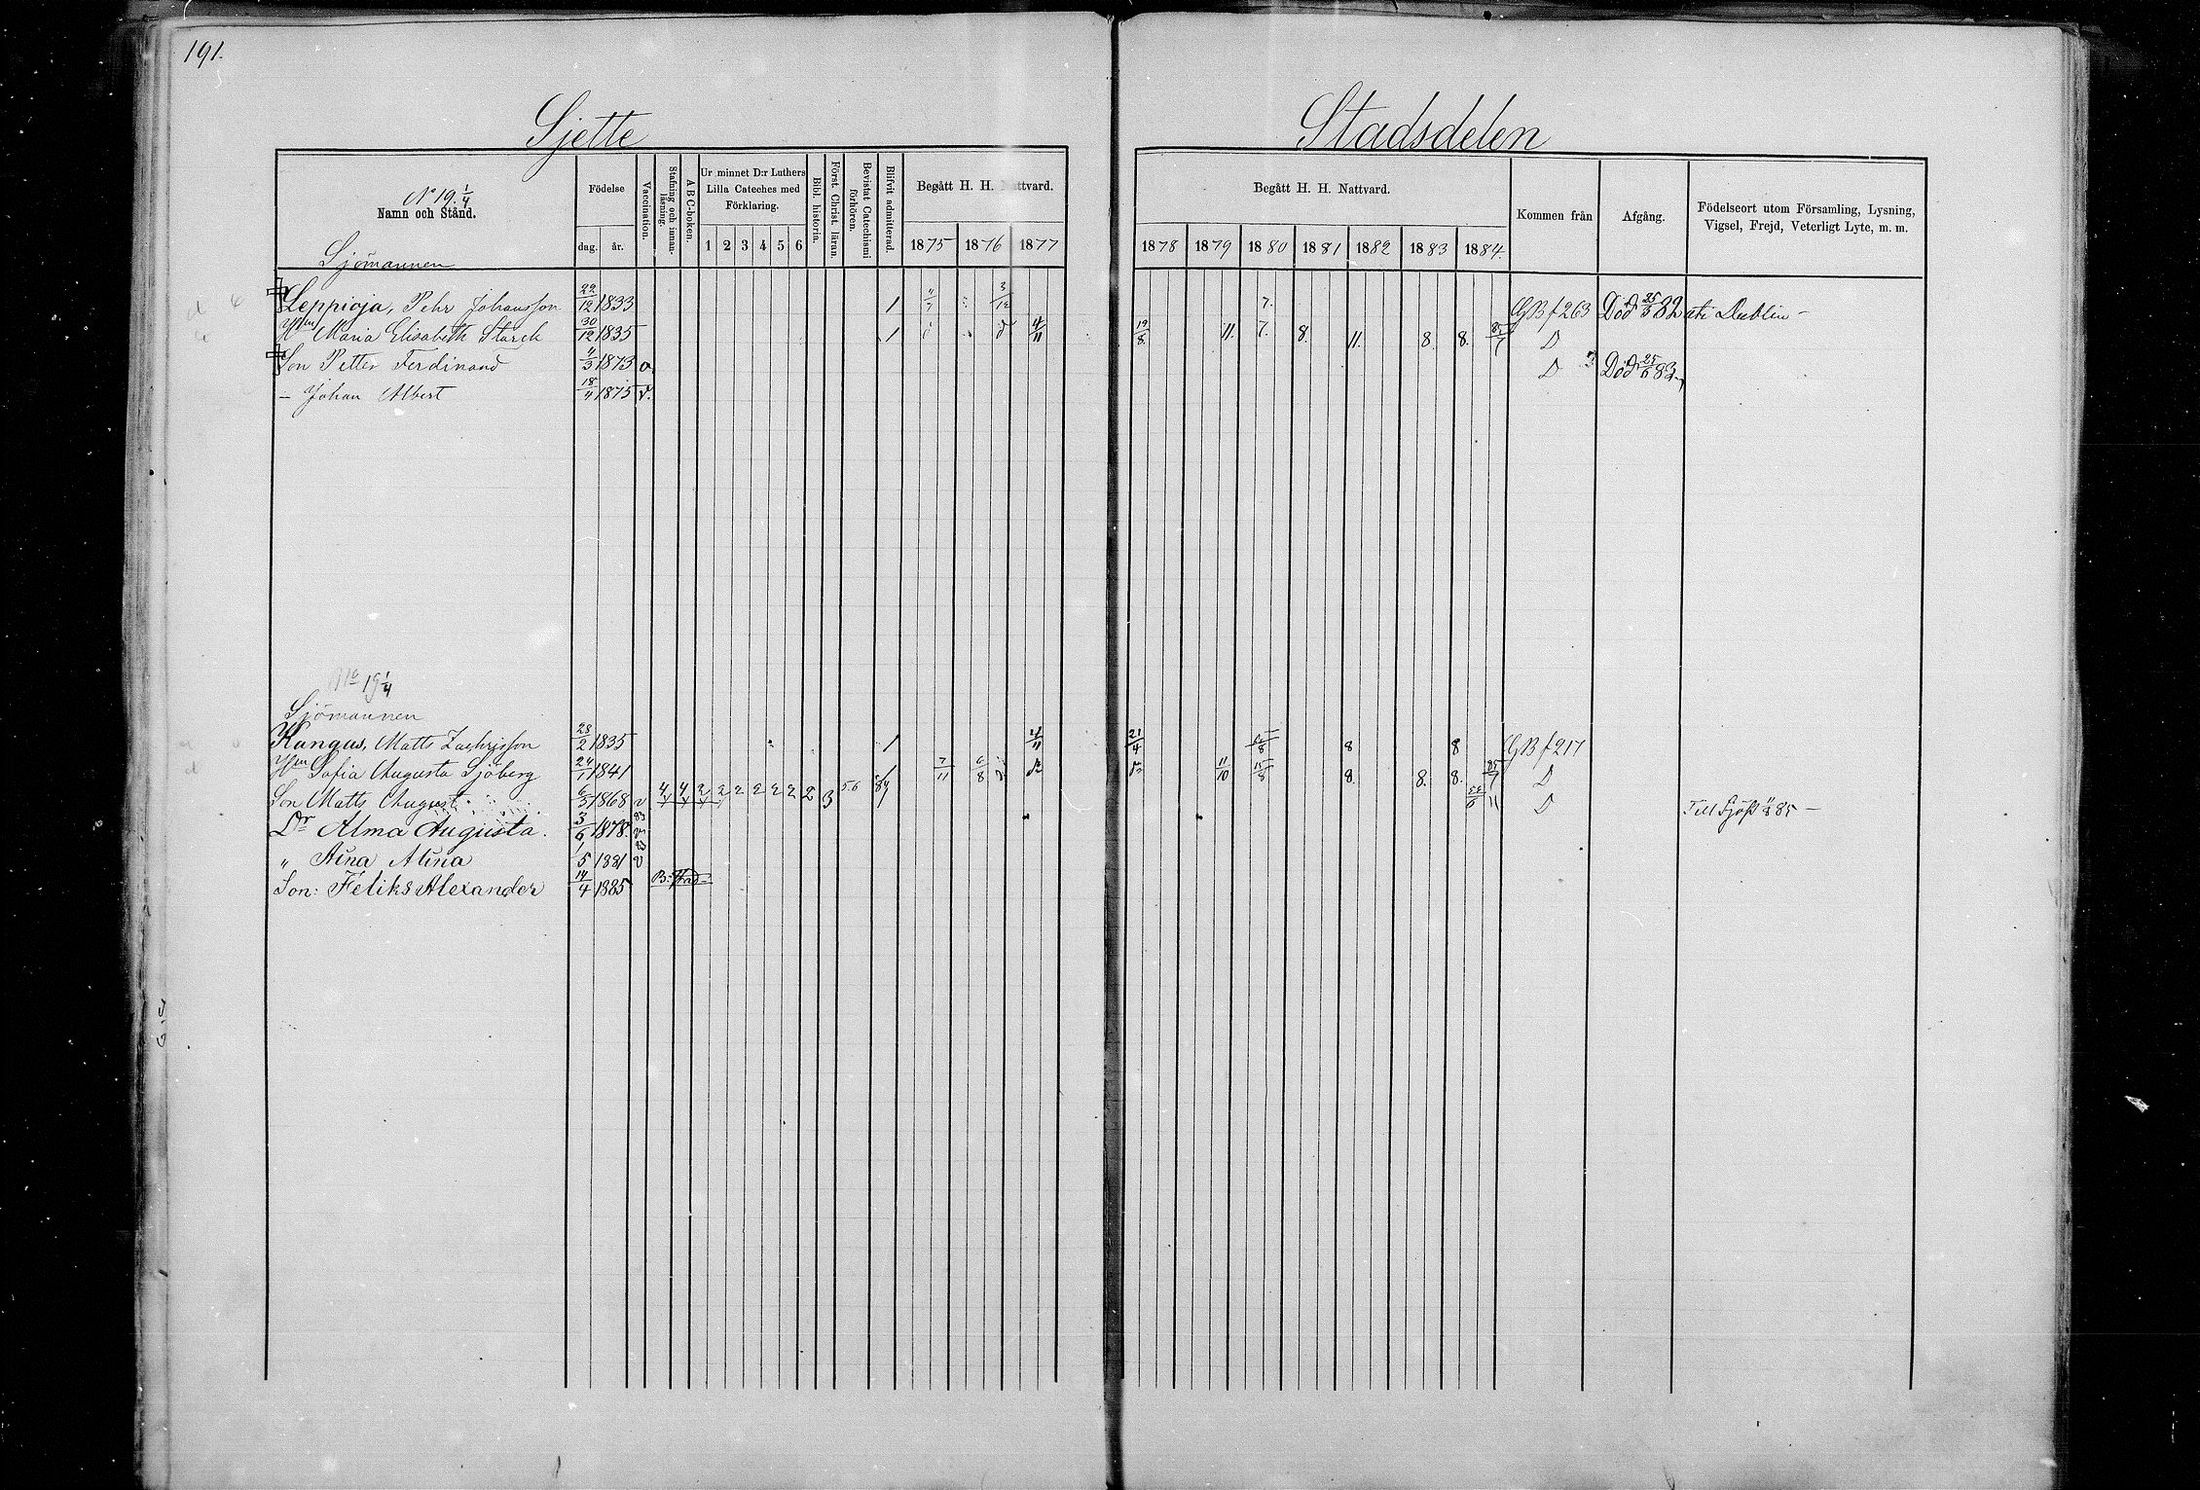 191.
Sjette Stadsdelen
No 19. 1/4
Namn och Stånd.
Födelse
dag. år.
Vaccination.
Stafning och innan-läsning.
A B C-boken.
Ur minnet D:r Luthers Lilla Cateches med Förklaring.
1 2 3 4 5 6
Bibl. historia.
Först. Christ. läran.
Bevistat Catechismi förhören.
Blifvit admitterad.
Begått H. H. Nattvard.
1875 1876 1877
Begått H. H. Nattvard.
1878 1879 1880 1881 1882 1883 1884.
Kommen från
Afgång.
Födelseort utom Församling, Lysning, Vigsel, Frejd, Veterligt Lyte, m. m.
Sjömannen
Leppioja, Pehr Johansson 22/12 1833 1 3/12 7. GB f 263 Död 25/5 82 uti Dublin -
H:n Maria Elisabeth Starck 30/12 1835 1 4/11 19/8 11. 7. 8. 11. 8. 8. 85/7 D
Son Petter Ferdinand 11/3 1873 v D Död 25/6 83
- Johan Albert 18/11 1875 v.
No 19 1/4
Sjömannen
Kangus, Matts Zachrisson 28/2 1835 1 4/11 21/4 8 8 GB f 217
H:n Sofia Augusta Sjöberg 24/1 1841 1 7/11 6/8 11/10 15/8 8. 8. 8. 85/7 D
Son Matts August 6/3 1868 v 4 4 2 2 2 2 2 2 2 3 5.6 84 11 D Till Sjöss 11/8 85 -
Dr Alma Augusta. 3/6 1878. 83 v
" Aina Alina 1/5 1881 83 v
Son: Feliks Alexander 14/4 1885 B: stad